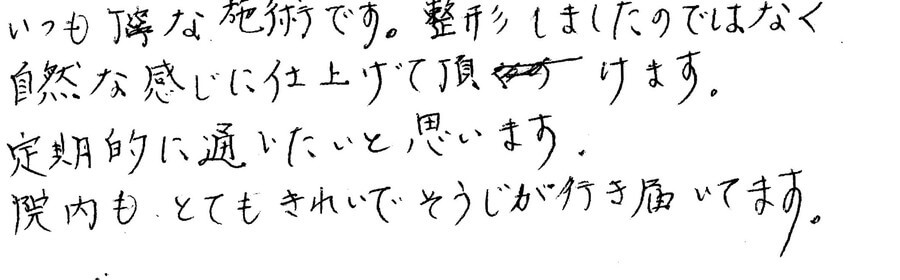 いつも丁寧な施術です。整形しましたのではなく
自然な感じに仕上げて頂けます。
定期的に通いたいと思います.
院内も とてもきれいで そうじが行き届いてます。